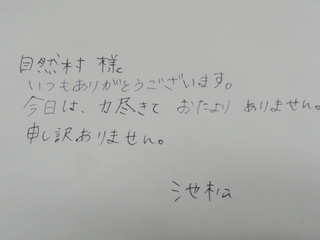 自然村 様
いつもありがとうございます。
今日は、力尽きて おたより ありません。
申し訳ありません。
池松